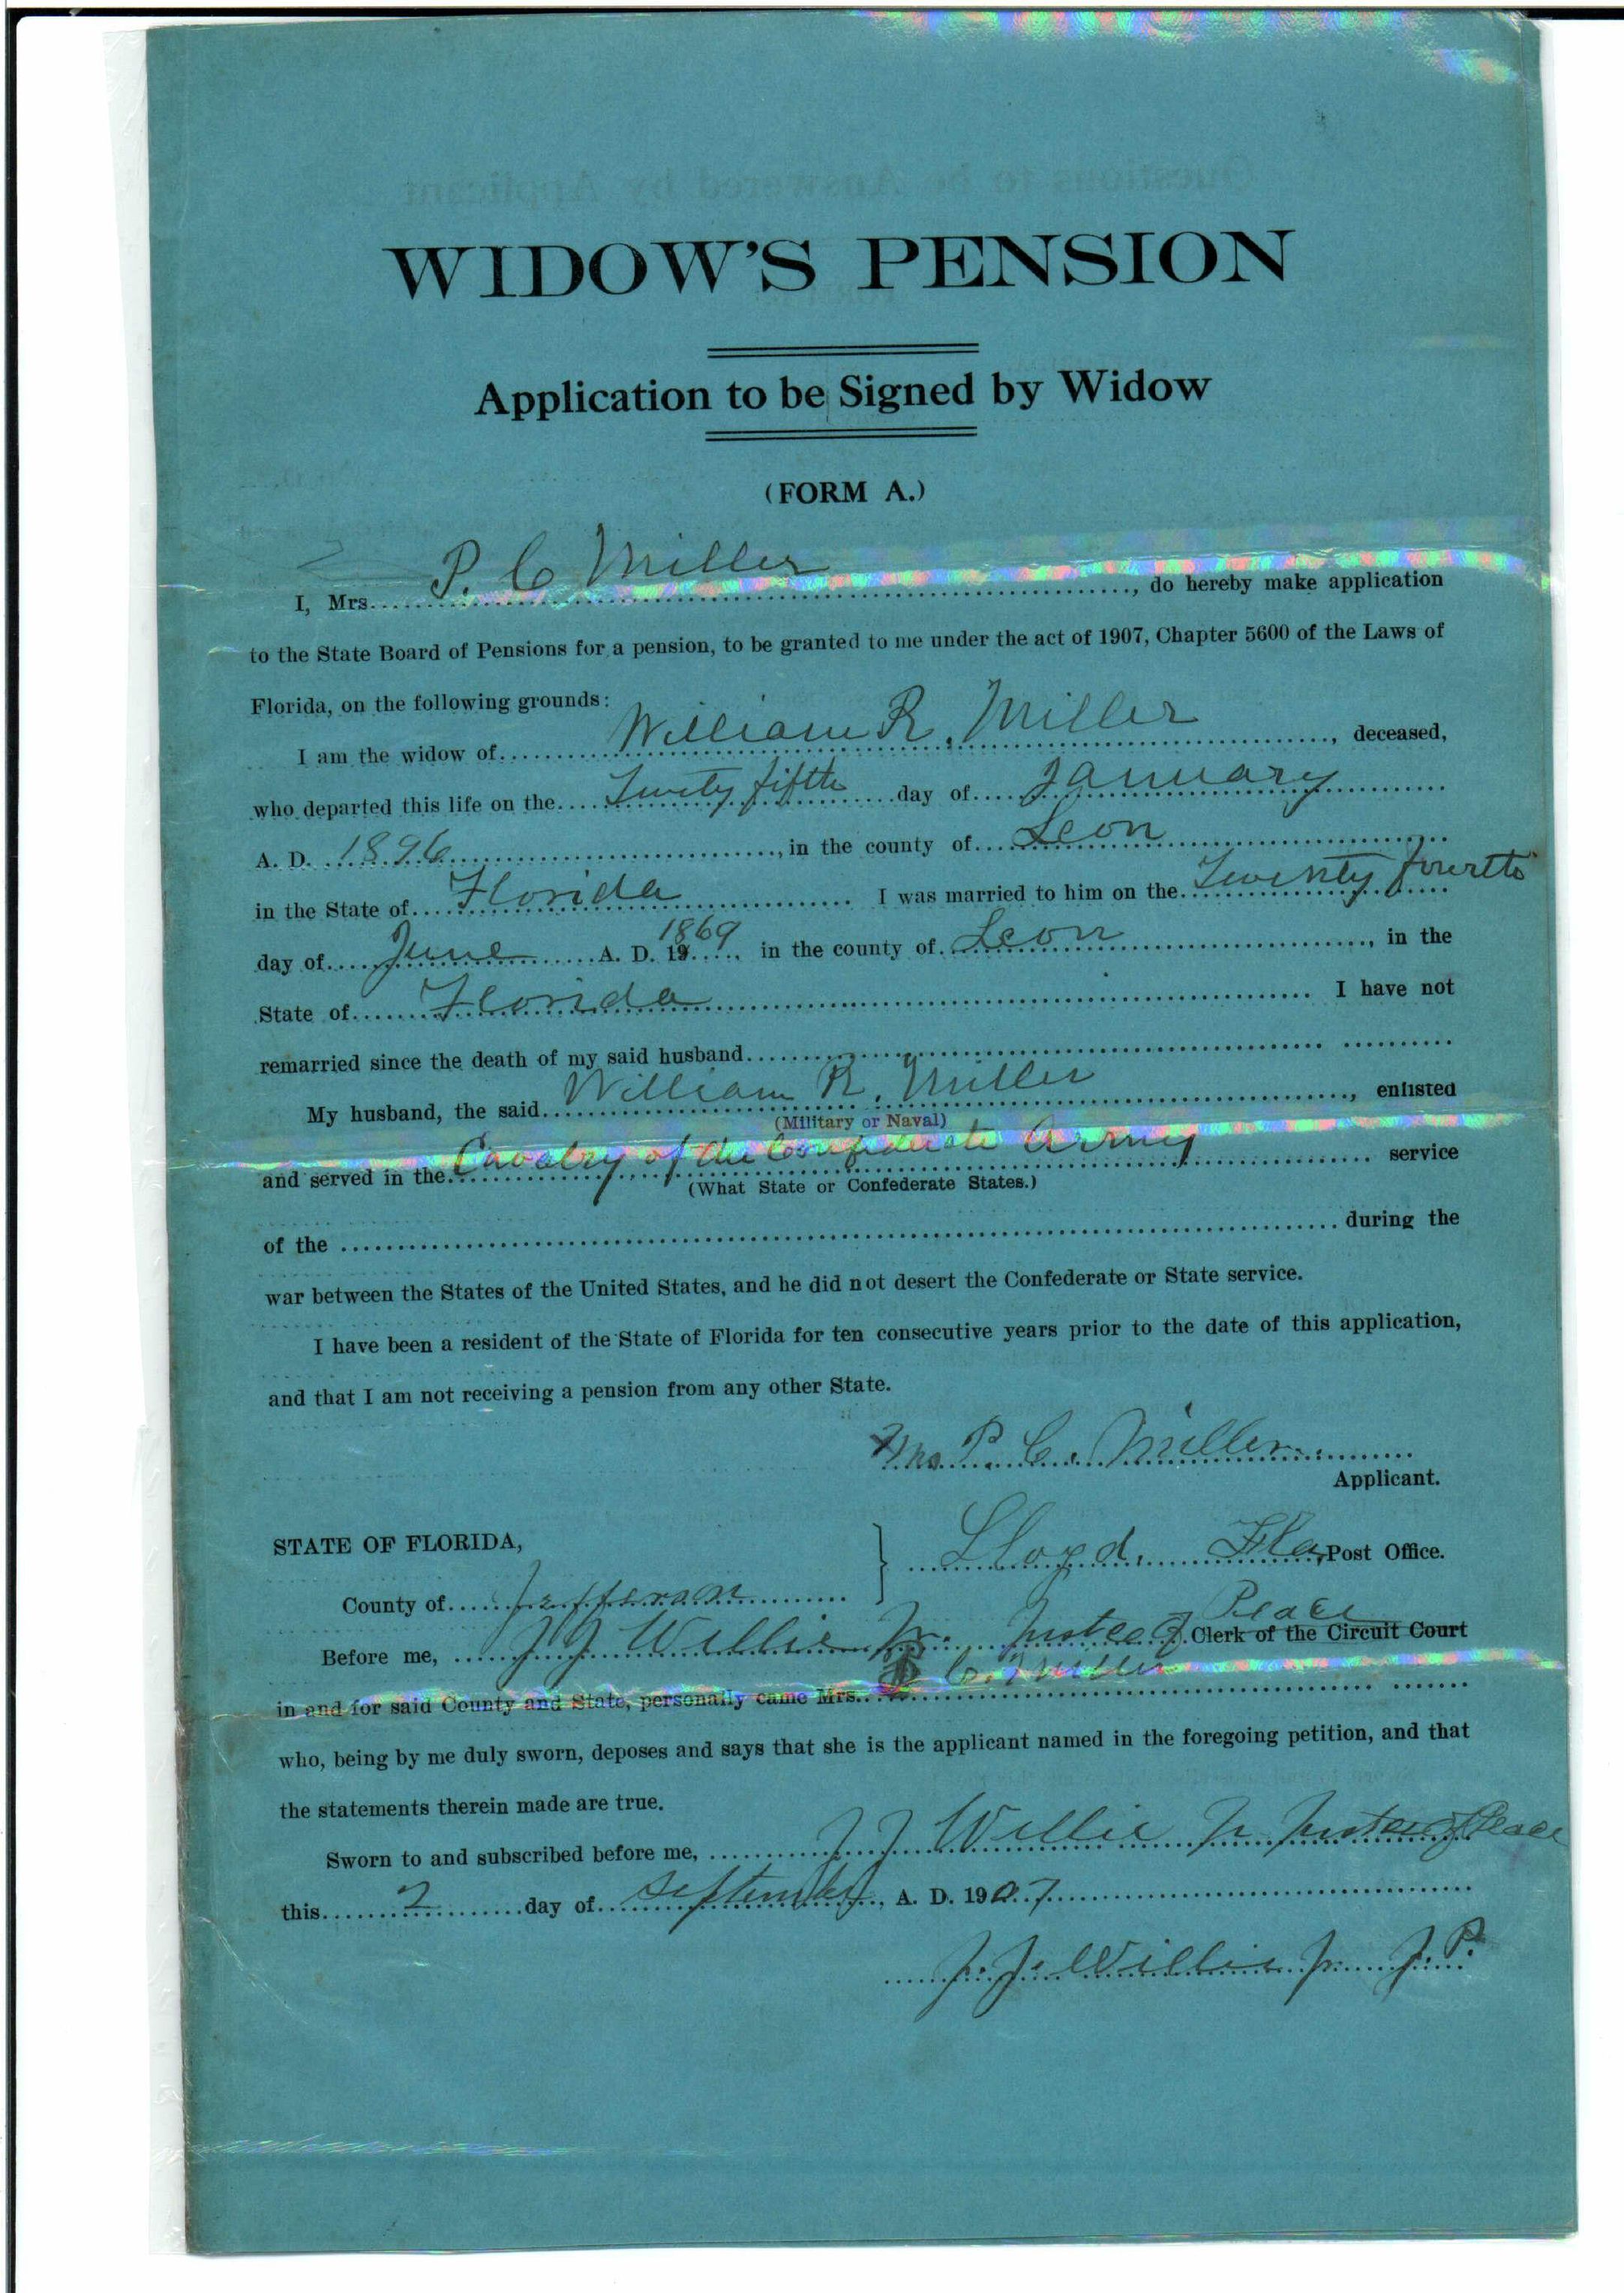 WIDOW'S PENSION
Application to be Signed by Widow
(FORM A.)
I, Mrs. P. C Miller, do hereby make application
to the State Board of Pensions for a pension, to be granted to me under the act of 1907, Chapter 5600 of the Laws of
Florida, on the following grounds:
I am the widow of William R. Miller, deceased,
who departed this life on the Twenty fifth day of January
A. D. 1896, in the county of Leon
in the State of Florida I was married to him on the Twenty fourth
day of June A. D. 19 1869 in the county of Leon, in the
State of Florida I have not
remarried since the death of my said husband
My husband, the said William R. Miller, enlisted
(Military or Naval)
and served in the Cavalry of the Confederate Army service
(What State or Confederate States.)
of the during the
war between the States of the United States, and he did not desert the Confederate or State service.
I have been a resident of the State of Florida for ten consecutive years prior to the date of this application,
and that I am not receiving a pension from any other State.
Mrs P. C. Miller
Applicant.
STATE OF FLORIDA,
Lloyd, Fla, Post Office.
County of Jefferson
Before me, J J Willie Jr. Justce of Peace Clerk of the Circuit Court
in and for said County and State, personally came Mrs. P C. Miller
who, being by me duly sworn, deposes and says that she is the applicant named in the foregoing petition, and that
the statements therein made are true.
Sworn to and subscribed before me, J J Willie Jr Justce of Peace
this 2 day of September, A. D. 1907
J. J. Willie Jr. J. P.